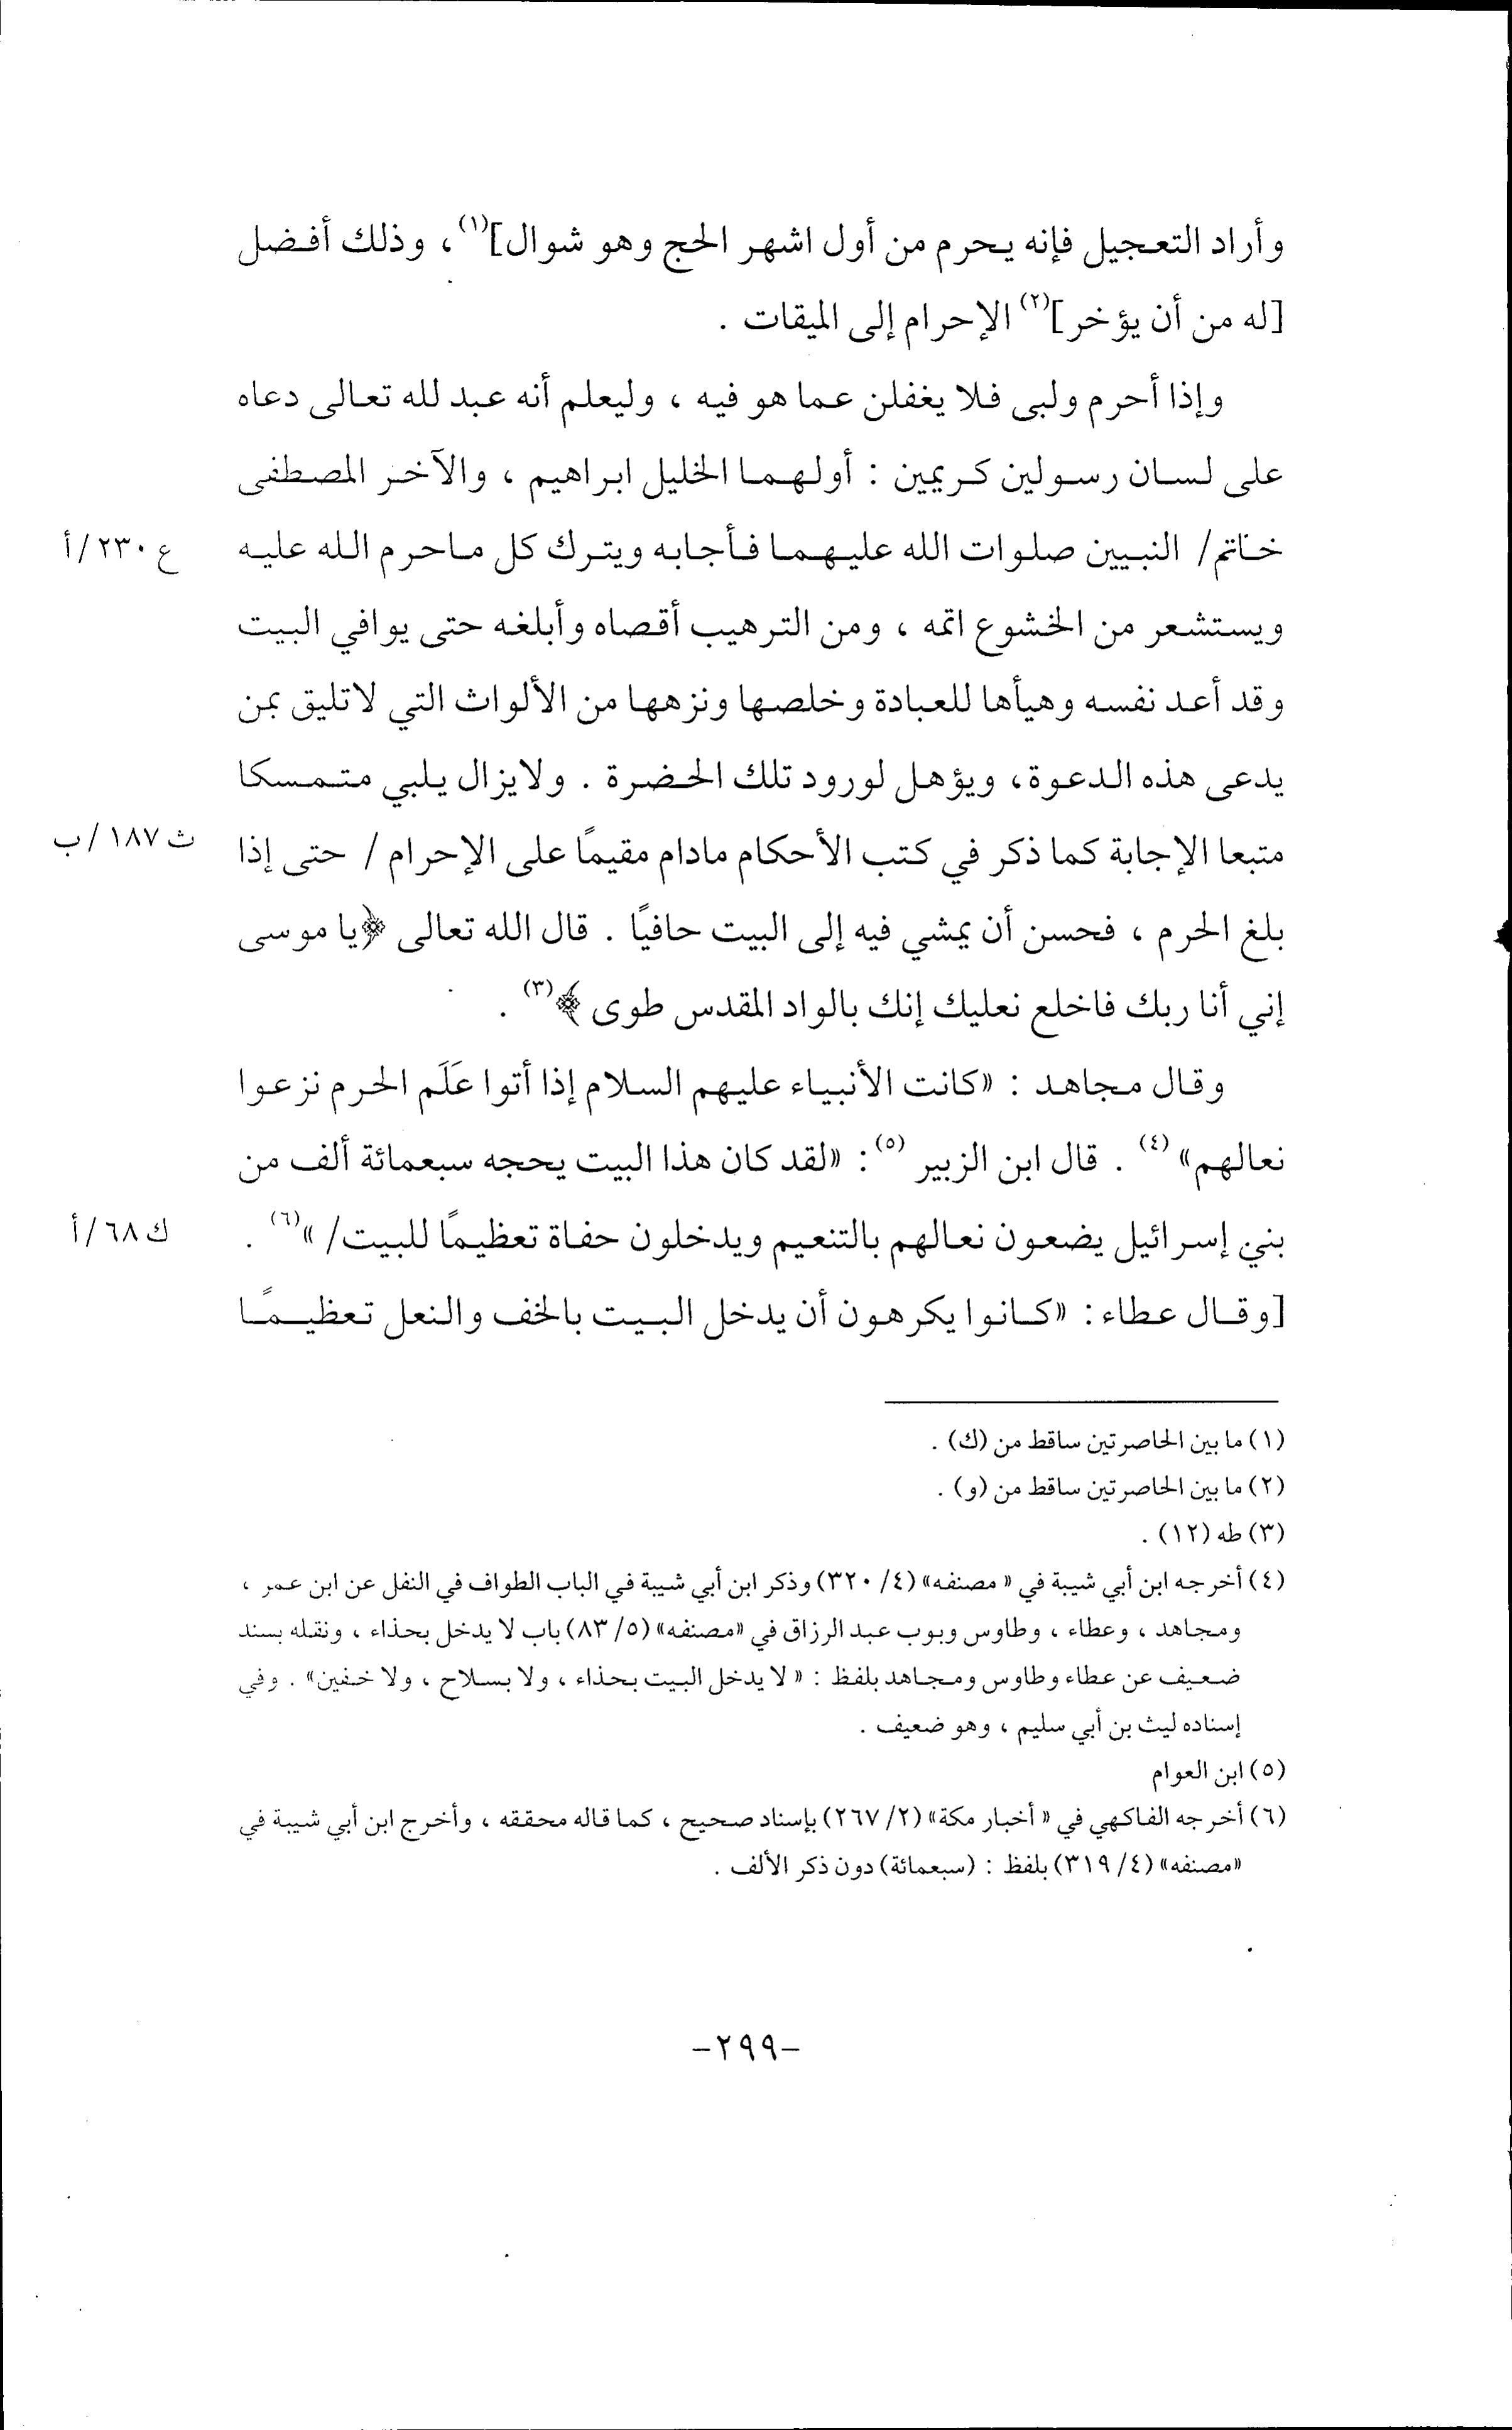 وأراد التعجيل فإنه يحرم من أول اشهر الحج وهو شوال](١)، وذلك أفضل
[له من أن يؤخر](٢) الإحرام إلى الميقات .
وإذا أحرم ولبى فلا يغفلن عما هو فيه ، وليعلم أنه عبد لله تعالى دعاه
على لسان رسولين كريمين : أولهما الخليل ابراهيم ، والآخر المصطفى
خاتم/ النبيين صلوات الله عليهما فأجابه ويترك كل ماحرم الله عليه
ع ٢٣٠/أ
ويستشعر من الخشوع اتمه ، ومن الترهيب أقصاه وأبلغه حتى يوافي البيت
وقد أعد نفسه وهيأها للعبادة وخلصها ونزهها من الألواث التي لاتليق بمن
يدعى هذه الدعوة، ويؤهل لورود تلك الحضرة . ولايزال يلبي متمسكا
متبعا الإجابة كما ذكر في كتب الأحكام مادام مقيمًا على الإحرام / حتى إذا
ث ١٨٧/ب
بلغ الحرم ، فحسن أن يمشي فيه إلى البيت حافيًا . قال الله تعالى ﴿يا موسى
إني أنا ربك فاخلع نعليك إنك بالواد المقدس طوى ﴾(٣) .
وقال مجاهد : «كانت الأنبياء عليهم السلام إذا أتوا عَلَم الحرم نزعوا
نعالهم» (٤) . قال ابن الزبير (٥): «لقد كان هذا البيت يحجه سبعمائة ألف من
بني إسرائيل يضعون نعالهم بالتنعيم ويدخلون حفاة تعظيمًا للبيت/ »(٦) .
ك ٦٨/أ
[وقال عطاء: «كانوا يكرهون أن يدخل البيت بالخف والنعل تعظيمًا
(١) ما بين الحاصرتين ساقط من (ك) .
(٢) ما بين الحاصرتين ساقط من (و) .
(٣) طه (١٢) .
(٤) أخرجه ابن أبي شيبة في « مصنفه» (٤/ ٣٢٠) وذكر ابن أبي شيبة في الباب الطواف في النفل عن ابن عمر ،
ومجاهد ، وعطاء ، وطاوس وبوب عبد الرزاق في «مصنفه» (٥/ ٨٣) باب لا يدخل بحذاء ، ونقله بسند
ضعيف عن عطاء وطاوس ومجاهد بلفظ : « لا يدخل البيت بحذاء ، ولا بسلاح ، ولا خفين» . وفي
إسناده ليث بن أبي سليم ، وهو ضعيف .
(٥) ابن العوام
(٦) أخرجه الفاكهي في « أخبار مكة» (٢/ ٢٦٧) بإسناد صحيح ، كما قاله محققه ، وأخرج ابن أبي شيبة في
«مصنفه» (٤/ ٣١٩) بلفظ : (سبعمائة) دون ذكر الألف .
-٢٩٩-